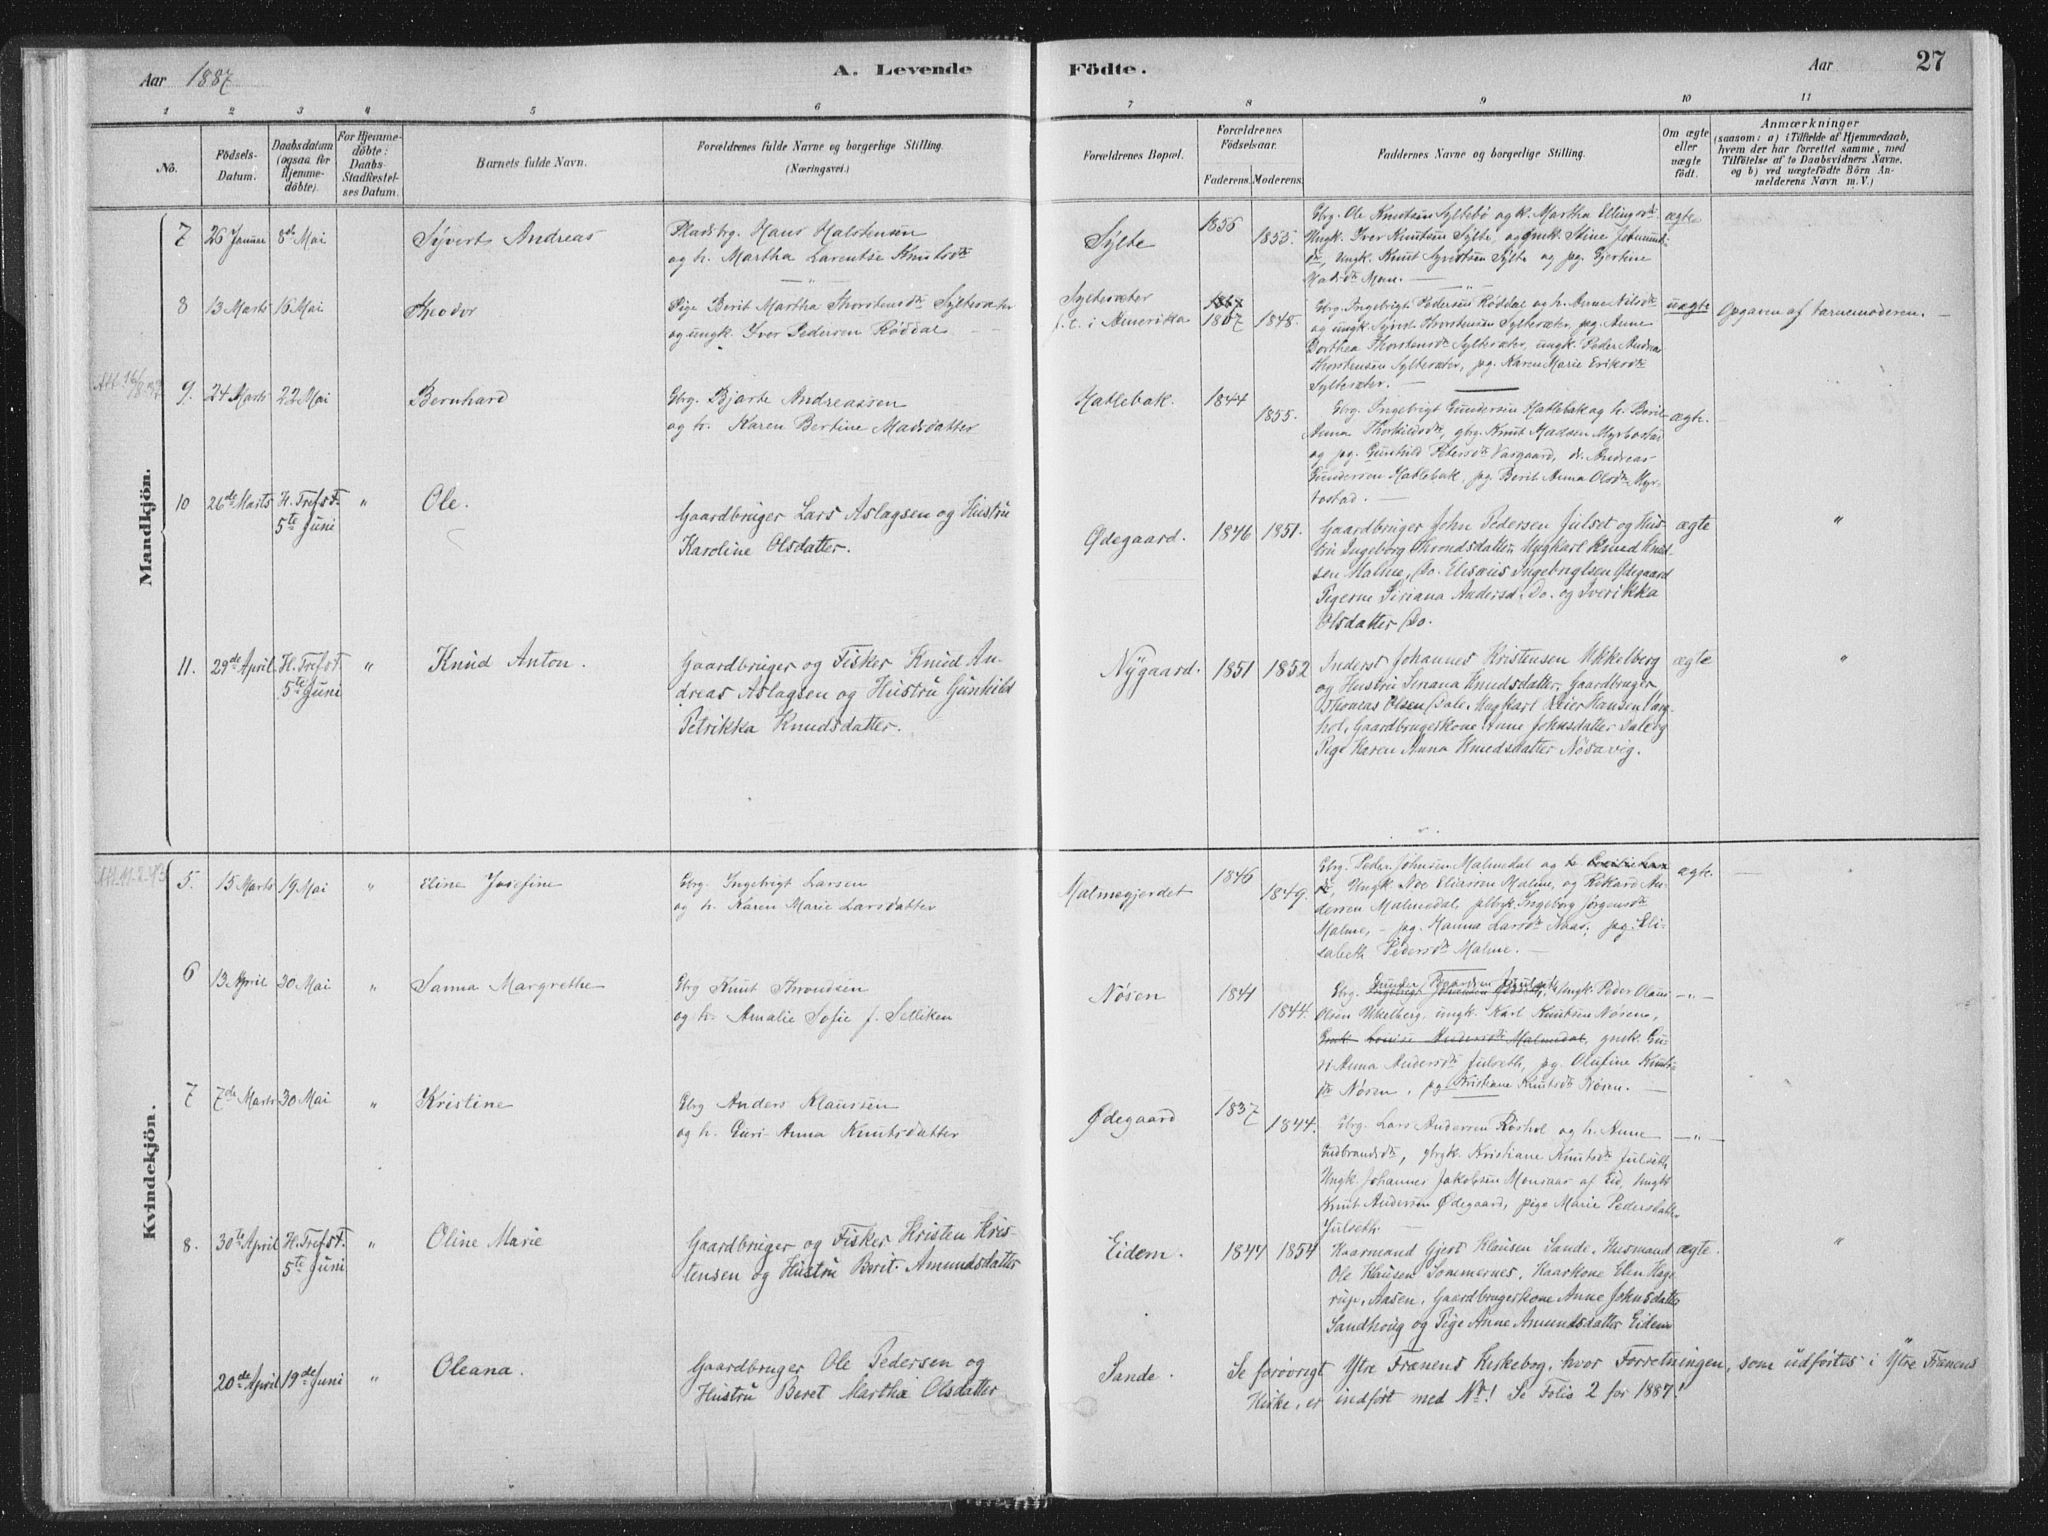 Aar 1887
A. Levende
Födte.
Aar
27
1 2 3 4 5 6 7 8 9 10 11
No.
Födsels-
Datum.
Daabsdatum
(ogsaa for
Hjemme-
döbte).
For Hjemme-
döbte:
Daabs-
Stadfestel-
ses Datum.
Barnets fulde Navn.
Forældrenes fulde Navne og borgerlige Stilling.
(Næringsvei.)
Forældrenes Bopæl.
Forældrenes
Födselsaar.
Faderens. Moderens.
Faddernes Navne og borgerlige Stilling.
Om ægte
eller
uægte
födt.
Anmærkninger
(saasom: a) i Tilfælde af Hjemmedaab,
hvem der har forrettet samme, med
Tilföielse af to Daabsvidners Navne,
og b) ved uægtefödte Börn An-
melderens Navn m. V.)
Mandkjön.
7 26 Januar 8de Mai
Syvert Andreas
Pladsbrg. Hans Halstensen
og h. Martha Larentse Knutsdtr
Sylte
1856
1855.
Gbrg. Ole Knutsen Syltebø og k. Martha Ellingsdtr
Ungk. Iver Knutsen Sylte, og gmk. Stine
Ungk. Knut Syvertsen Sylte og pg. Gjertine
Madsdtr Moen.
ægte
8 13 Marts 16 Mai
Theodor
Pige Berit Martha Thorstensdtr Syltesæter
og ungk. Iver Pedersen Røddal
Syltesæter
f. t. i Amerika
1867
1848.
Gbrg. Ingebrigt Pedersen Røddal og h. Anne Nilsdtr
og ungk. Syvert Thorstensen Syltesæter, pg. Anne
Dorthea Thorstensdtr Syltesæter, ungk. Peder Andreas
Thorstensen Syltesæter, pg. Karen Marie Eriksdtr
Syltesæter.
uægte
Opgaven af barnemoderen.
9. 24 Marts 22 Mai
Bernhard
Gbrg. Bjarte Andreassen
og h. Karen Bertine Madsdatter
Hatlebak.
1844
1855.
Gbrg. Ingebrigt Gundersen Hatlebak og h. Berit
Anna Thorkildsdtr, gbrg. Knut Madsen Myrbostad
og pg. Gunhild Petersdtr Vasgaard, dr. Andreas
Gundersen Hatlebak, pg. Berit Anna Olsdtr Myr-
bostad.
ægte.
10 26de Marts H. Trefs F. 5te Juni "
Ole.
Gaardbruger Lars Aslagsen og Hustru
Karoline Olsdatter.
Ødegaard.
1846 1851.
Gaardbruger John Pedersen Julset og Hus-
tru Ingeborg Throndsdatter, Ungkarl Knud Knud-
sen Malme, Do. Elisæus Ingebrigtsen Ødegaard
Pigerne Siriana Andersd. Do. og Iverikka
Olsdatter Do.
ægte "
11. 29de April H. Trefs F. 5te Juni "
Knud Anton.
Gaardbruger og Fisker Knud An-
dreas Aslagsen og Hustru Gunhild
Petrikka Knudsdatter.
Nygaard.
1851 1852
Inderst Johannes Kristensen Ukkelberg
og Hustru Seriana Knudsdatter, Gaardbruger
Thomas Olsen Dale, Ungkarl Peier Hansen Varg-
hol, Gaardbrugerkone Anne Johnsdatter Dale og
Pige Karen Anna Knudsdatter Nösavig.
ægte "
Kvindekjön.
5. 15 Marts 19 Mai "
Eline Josefine
Gbrg Ingebrigt Larsen
og h. Karen Marie Larsdatter
Malmegjerdet
1846
1849.
Gbrg. Peder Johnsen Malmedal og
Ungk. Noe Eliassen Malme, og Rikard An-
dersen Malmedal, Ingeborg Jörgensdtr
Malme, – pg. Hanna Larsdtr Naas, pg. Eli-
sabeth Pedersdtr Malme. –
ægte. –
6 13 April 30 Mai "
Sanna Margrethe
Gbrg Knut Throndsen
og h. Amalie Sofie f. Selliken
Nøsen
1841
1844.
Gbrg. Ungk. Peder Olaus
Olsen Ukkelberg, ungk. Karl Knutsen Nøsen,
Gmk. Louise Andersdtr Malmedal, gmk. Gu-
ri Anna Andersdtr Julseth, pg. Olufine Knuts-
dtr Nøsen, pg Kristiane Knutsdtr Nøsen.
– " –
7 7de Marts 30 Mai "
Kristine
Gbrg Anders Klausen
og h. Guri Anna Knutsdatter
Ødegaard
1837
1844.
Gbrg. Lars Andersen Røshol og h. Anne
Gudbrandsdtr, gbrgk. Kristiane Knutsdtr Julseth,
Ungk. Johannes Jakobsen Monsaas af Eid, Ungk
Knut Andersen Ødegaard, pige Marie Pedersdatter
Julseth. –
– " –
8. 30te April H. Trefs F. 5te Juni "
Oline Marie
Gaardbruger og Fisker Kristen Kris-
tensen og Hustru Berit Amundsdatter
Eidem.
1847 1854
Kaarmand Gjert Klausen Sande, Husmand
Ole Klausen Sommernes, Kaarkone Elen Hage-
rup, Aasen, Gaardbrugerkone Anne Johnsdatter
Sandhoug og Pige Anne Amundsdatter Eidem
ægte. "
20de April 19de Juni "
Oleana.
Gaardbruger Ole Pedersen og
Hustru Beret Martha Olsdatter
Sande.
Se forøvrigt Ytre Frænens Kirkebog, hvor Forretningen, som udförtes i Ytre Frænens
Kirke, er indfört med No 1 Se Folio 2 for 1887!